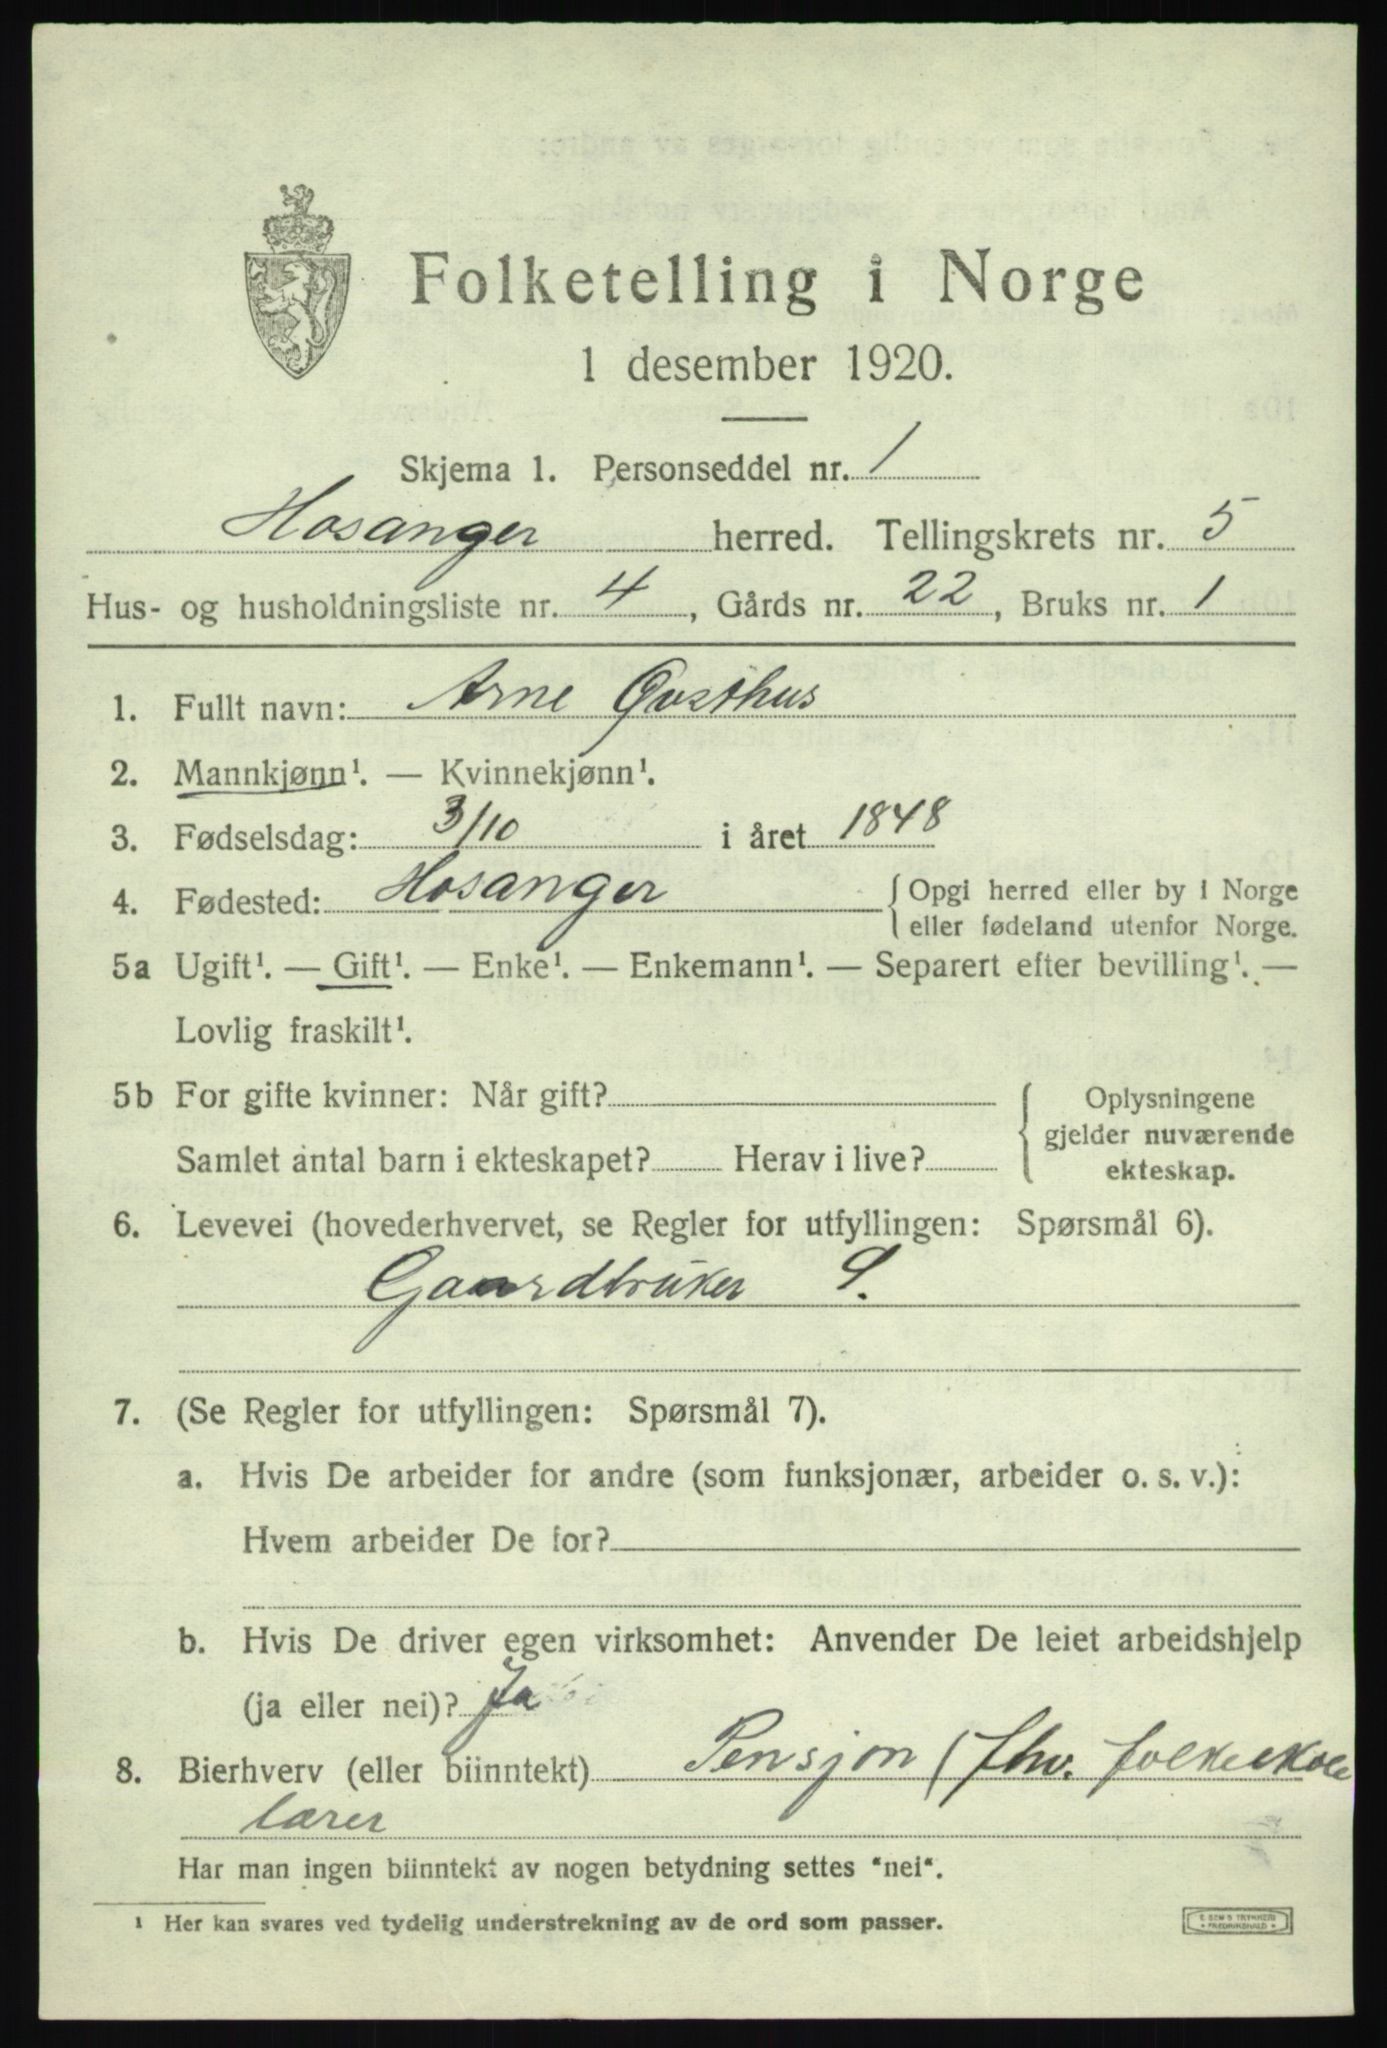 Folketelling i Norge
1 desember 1920.
Skjema 1. Personseddel nr. 1
Hosanger herred. Tellingskrets nr. 5
Hus- og husholdningsliste nr. 4, Gårds nr. 22, Bruks nr. 1
1. Fullt navn: Arne Qvasthus
2. Mannkjønn¹. — Kvinnekjønn¹.
3. Fødselsdag: 3/10 i året 1848
4. Fødested: Hosanger { Opgi herred eller by i Norge
eller fødeland utenfor Norge.
5a Ugift¹. — Gift¹. — Enke¹. — Enkemann¹. — Separert efter bevilling¹. —
Lovlig fraskilt¹.
5b For gifte kvinner: Når gift? Oplysningene
gjelder nuværende
Samlet antal barn i ekteskapet? Herav i live? ekteskap.
6. Levevei (hovederhvervet, se Regler for utfyllingen: Spørsmål 6).
Gaardbruker S.
7. (Se Regler for utfyllingen: Spørsmål 7).
a. Hvis De arbeider for andre (som funksjonær, arbeider o. s. v.):
Hvem arbeider De for?
b. Hvis De driver egen virksomhet: Anvender De leiet arbeidshjelp
(ja eller nei)? Ja
8. Bierhverv (eller biinntekt) Pensjon (fhv. folkeskole
lærer
Har man ingen biinntekt av nogen betydning settes "nei".
¹ Her kan svares ved tydelig understrekning av de ord som passer.